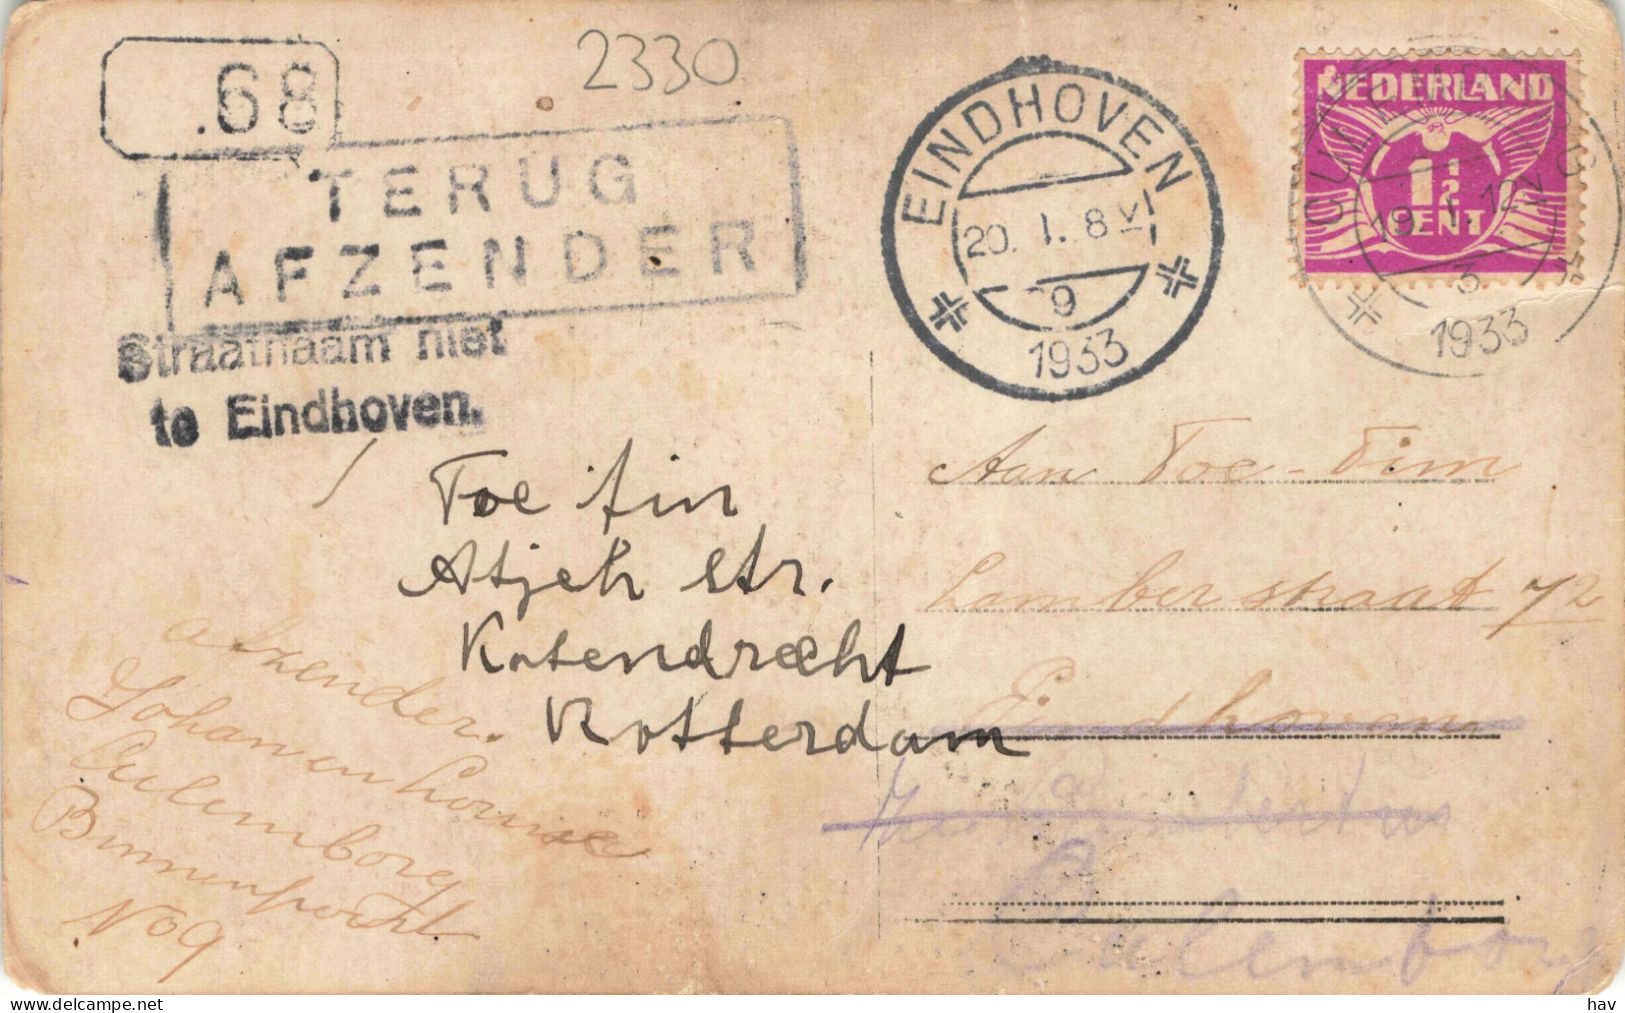 .68
2330
TERUG
AFZENDER
Straatnaam niet
te Eindhoven.
EINDHOVEN
20. 1. 8 V
9
1933
NEDERLAND
1½
CENT
CULEMBORG
19. 1. 12 V
3
1933
Aan Toe-Tim
Lamberstraat 72
Eindhoven
Lambertus
Culemborg
Toe tin
Atjeh str.
Katendrecht
Rotterdam
afzender.
Johannen
Culemborg
Binnenpoort
No 9
delcampe.net
hav